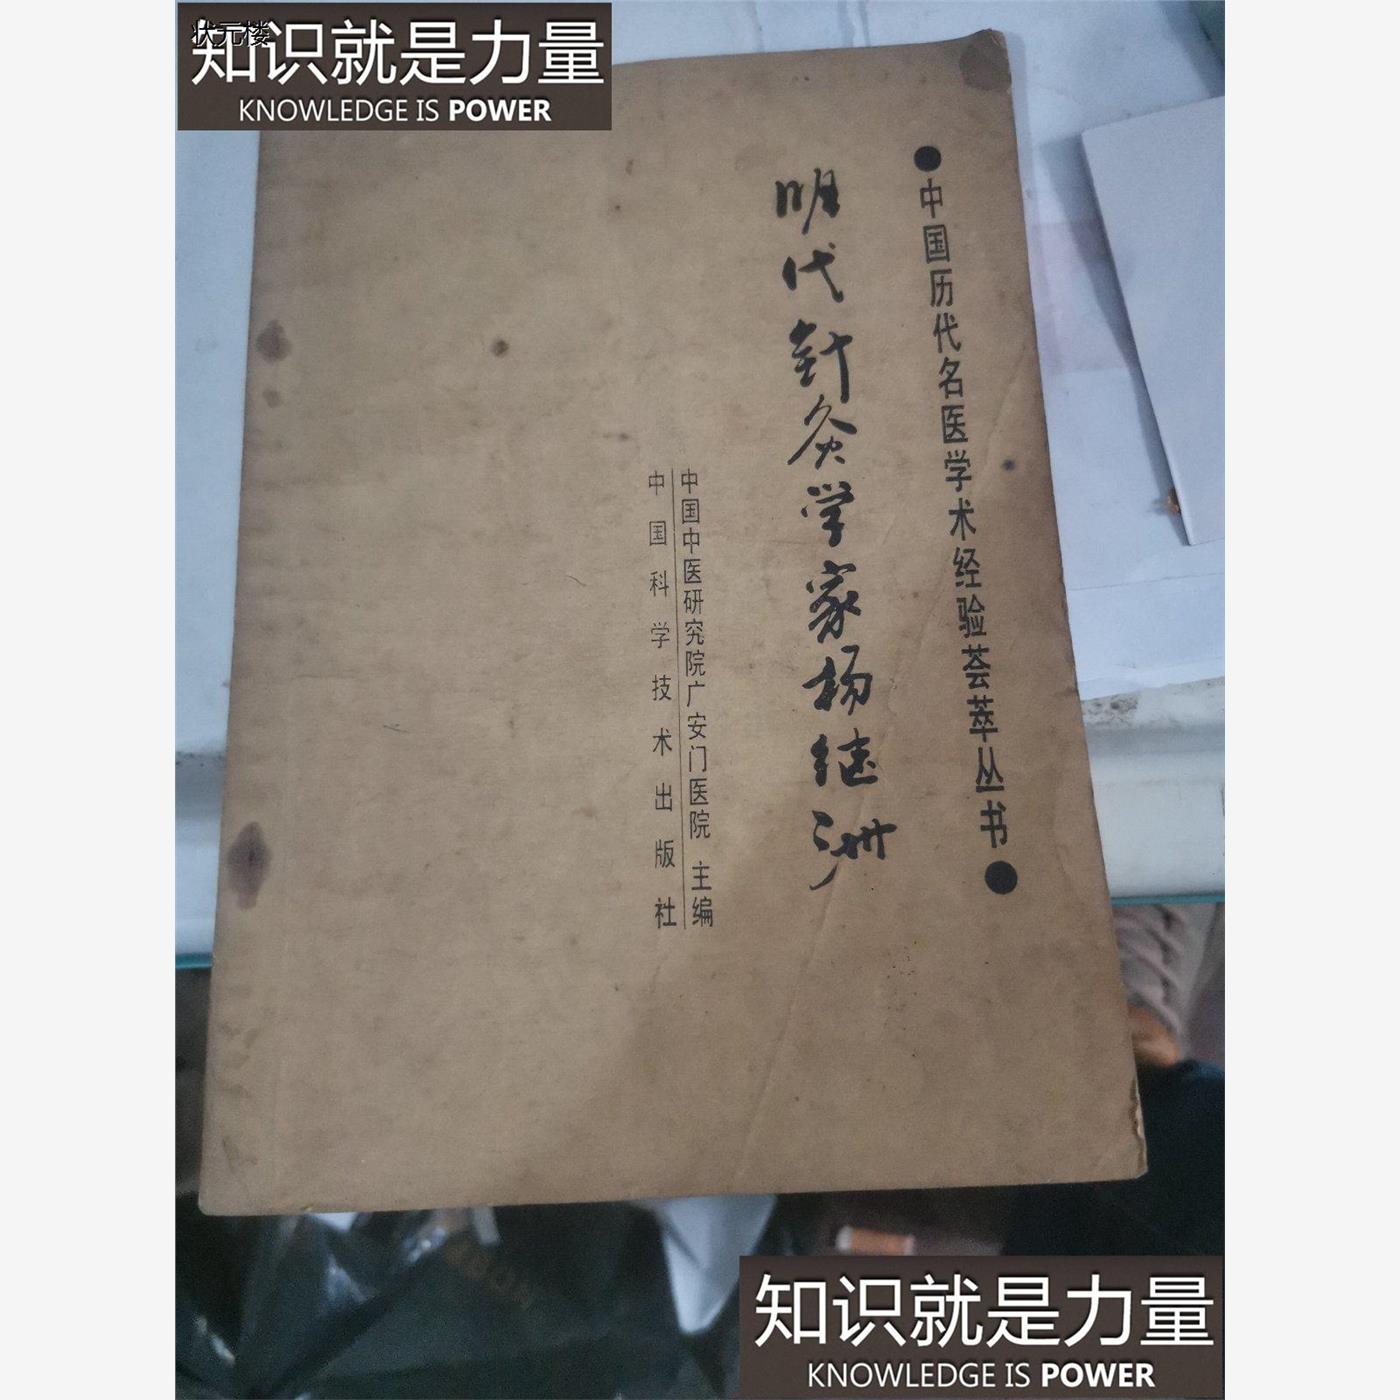 状元楼
知识就是力量
KNOWLEDGE IS POWER
●中国历代名医学术经验荟萃丛书●
明代针灸学家杨继洲
中国中医研究院广安门医院 主编
中国科学技术出版社
知识就是力量
KNOWLEDGE IS POWER